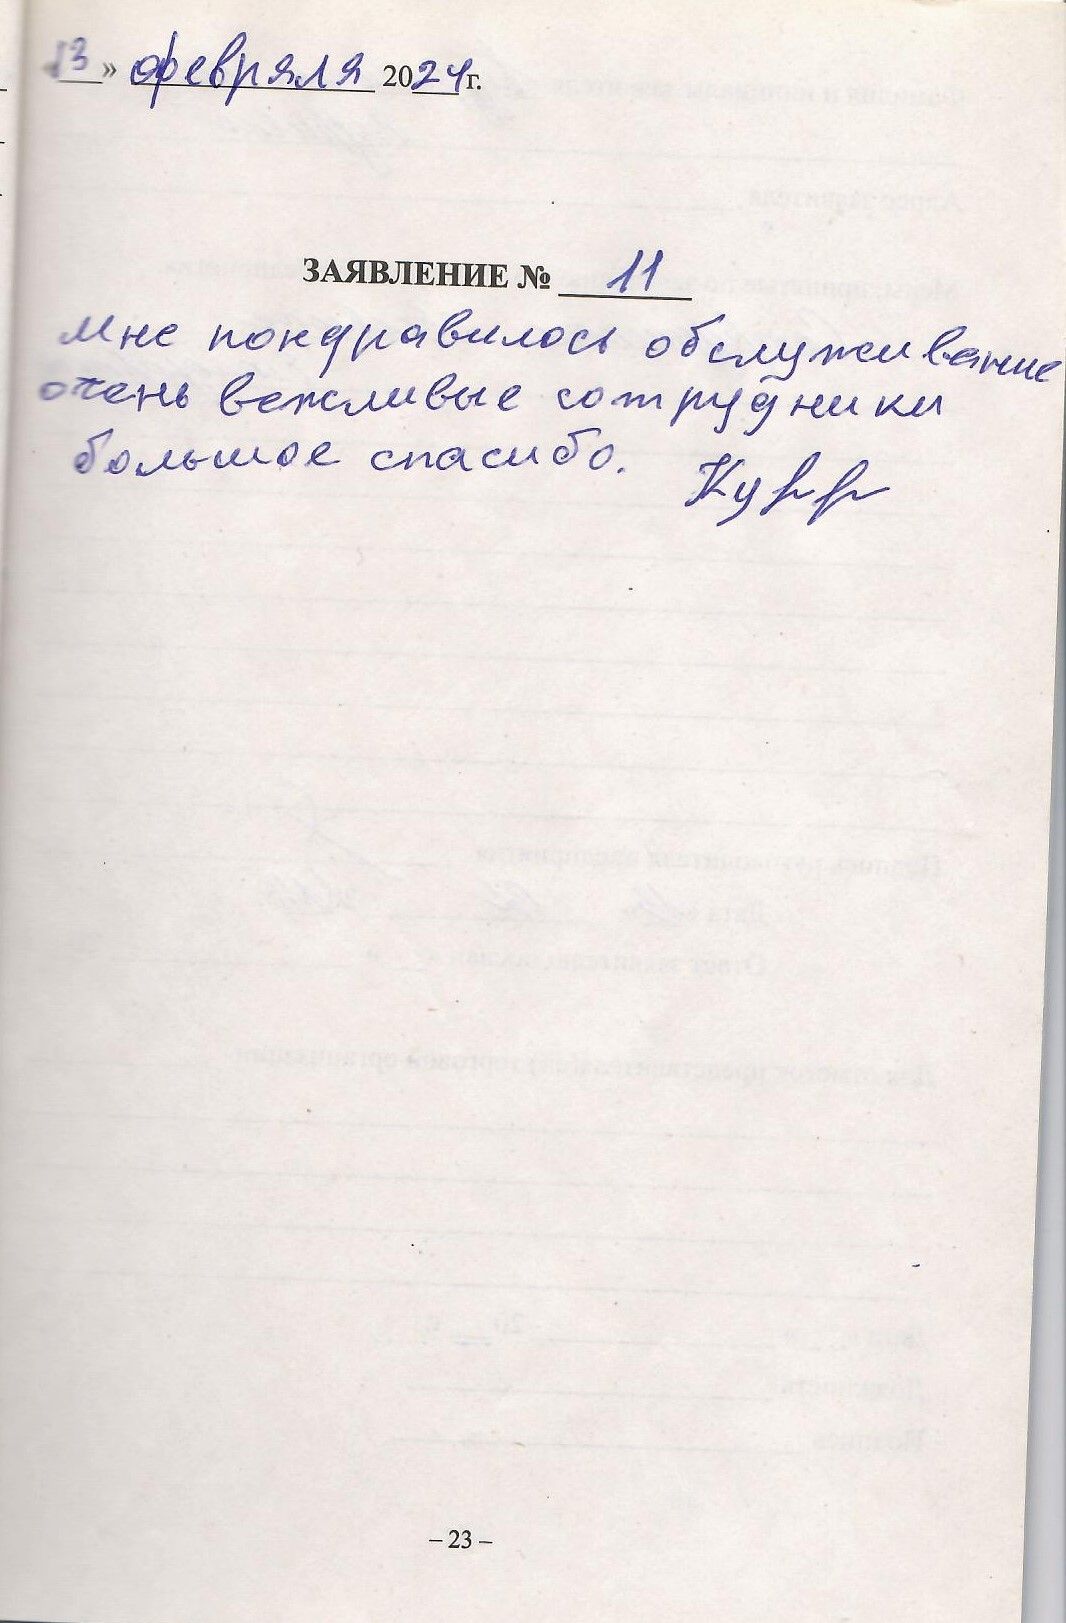 13» февраля 2024г.
ЗАЯВЛЕНИЕ № 11
Мне пондравилось обслуживание
очень вежливые сотрудники
большое спасибо.
– 23 –